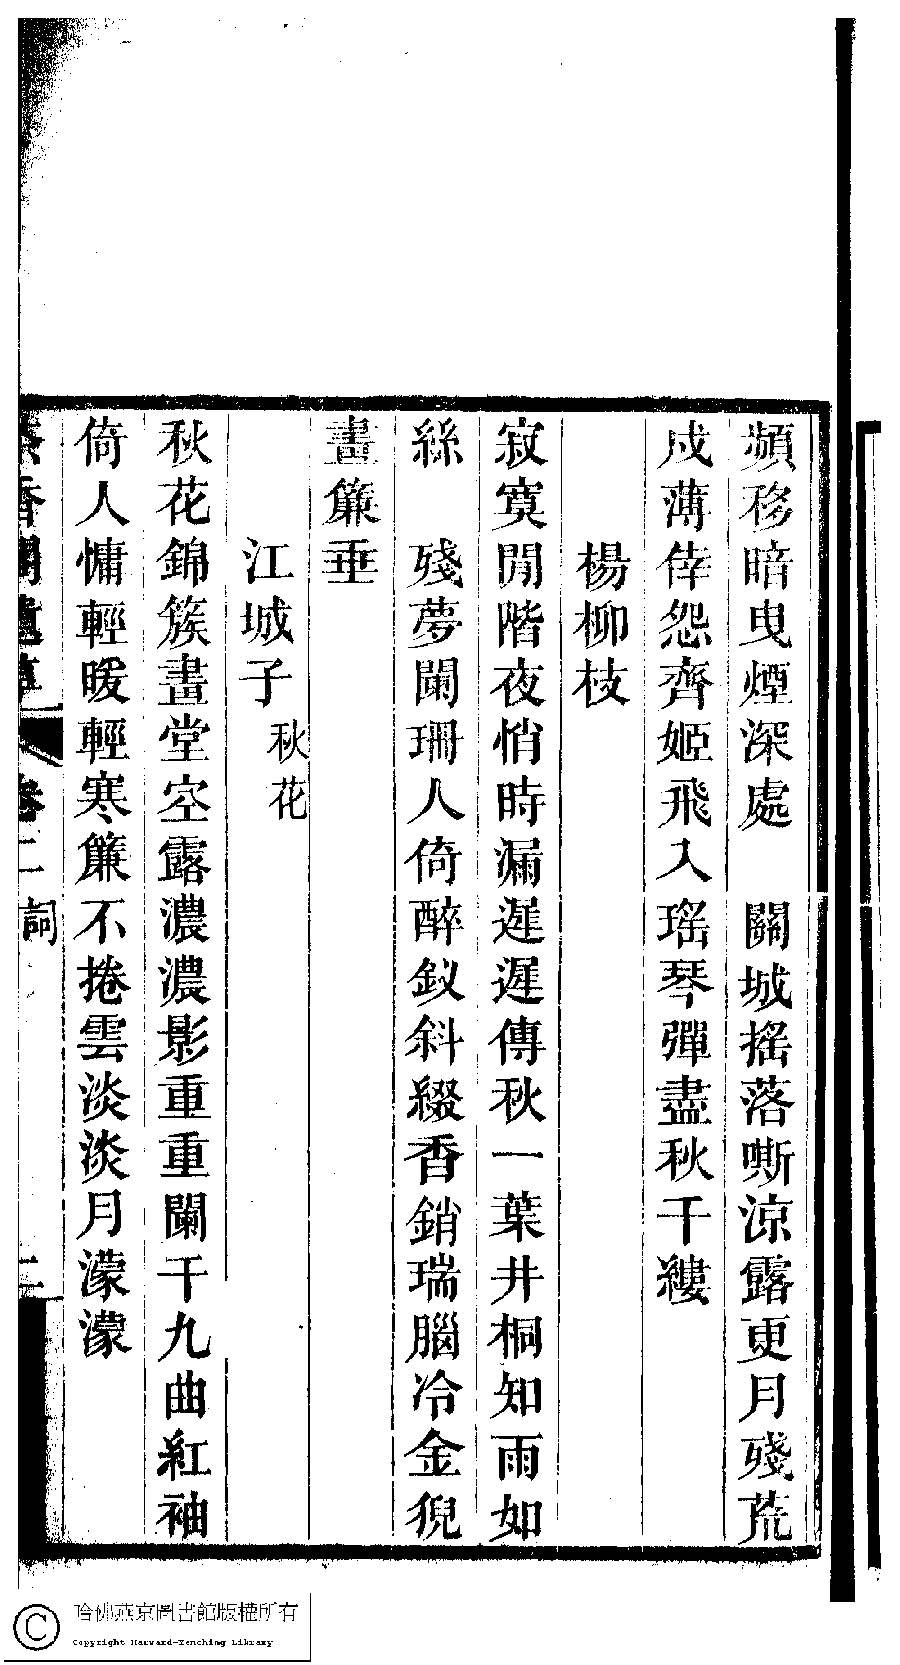 頻移暗曳煙深處　關城搖落嘶涼露更月殘荒
戍薄倖怨齊姬飛入瑤琴彈盡秋千縷
楊柳枝
寂寞閒階夜悄時漏遲遲傳秋一葉井桐知雨如
絲　殘夢闌珊人倚醉釵斜綴香銷瑞腦冷金猊
畫簾垂
江城子 秋花
秋花錦簇畫堂空露濃濃影重重闌干九曲紅袖
倚人慵輕暖輕寒簾不捲雲淡淡月濛濛
卷二 詞 二
哈佛燕京圖書館版權所有
Copyright Harvard-Yenching Library